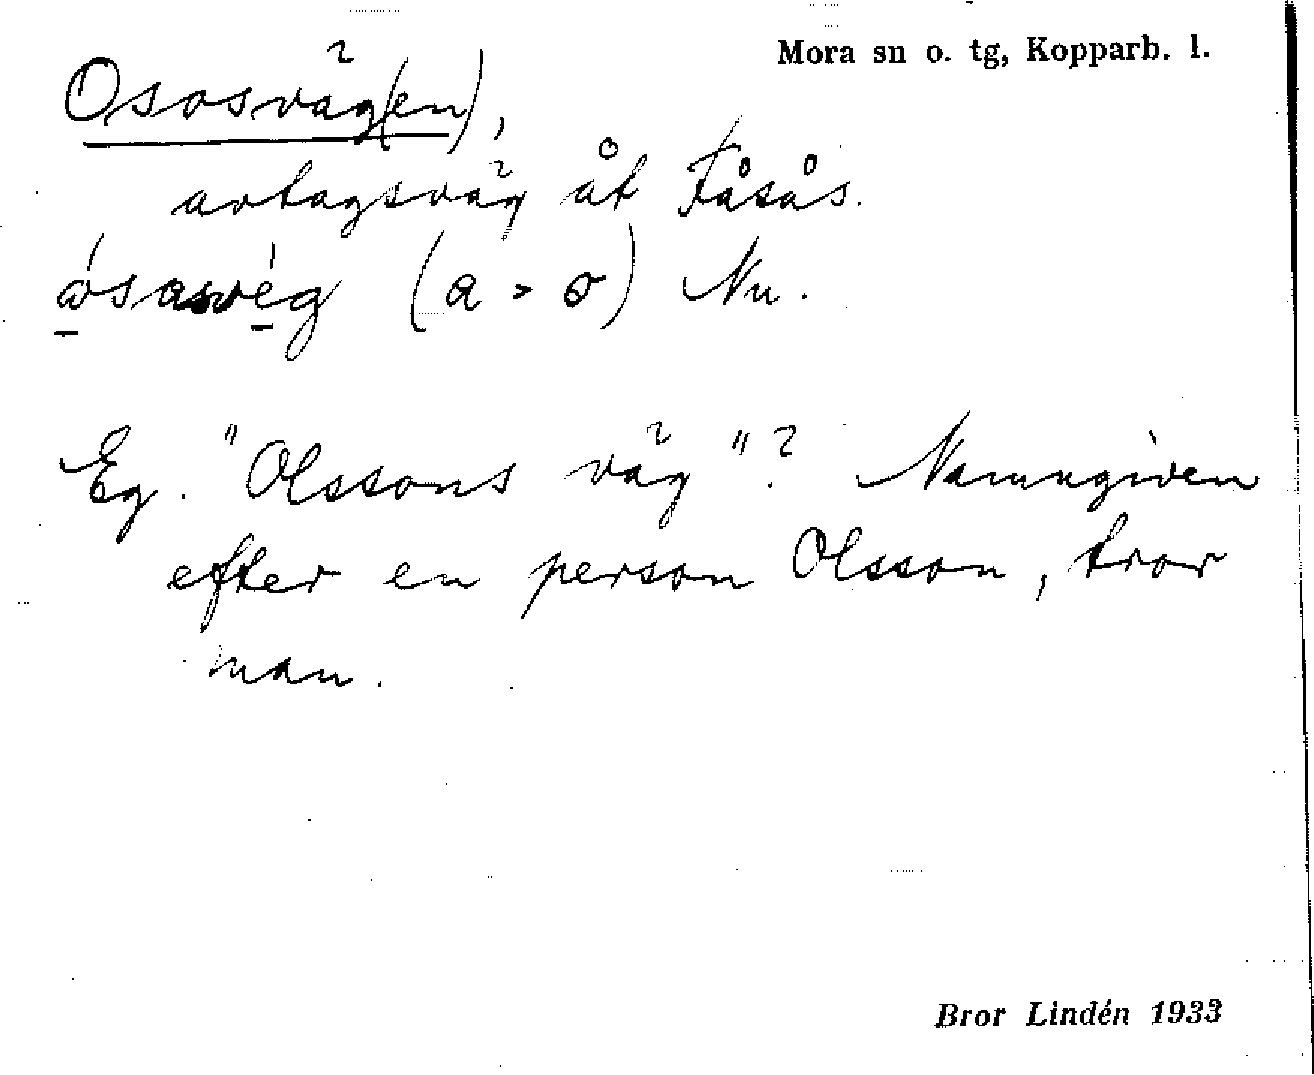 Mora sn o. tg, Kopparb. l.
Ososväg(en),
avtagsväg åt Fåsås.
(a > o) Nu.
Eg. "Olssons väg"? Namngiven
efter en person Olsson, tror
man.
Bror Lindén 1933